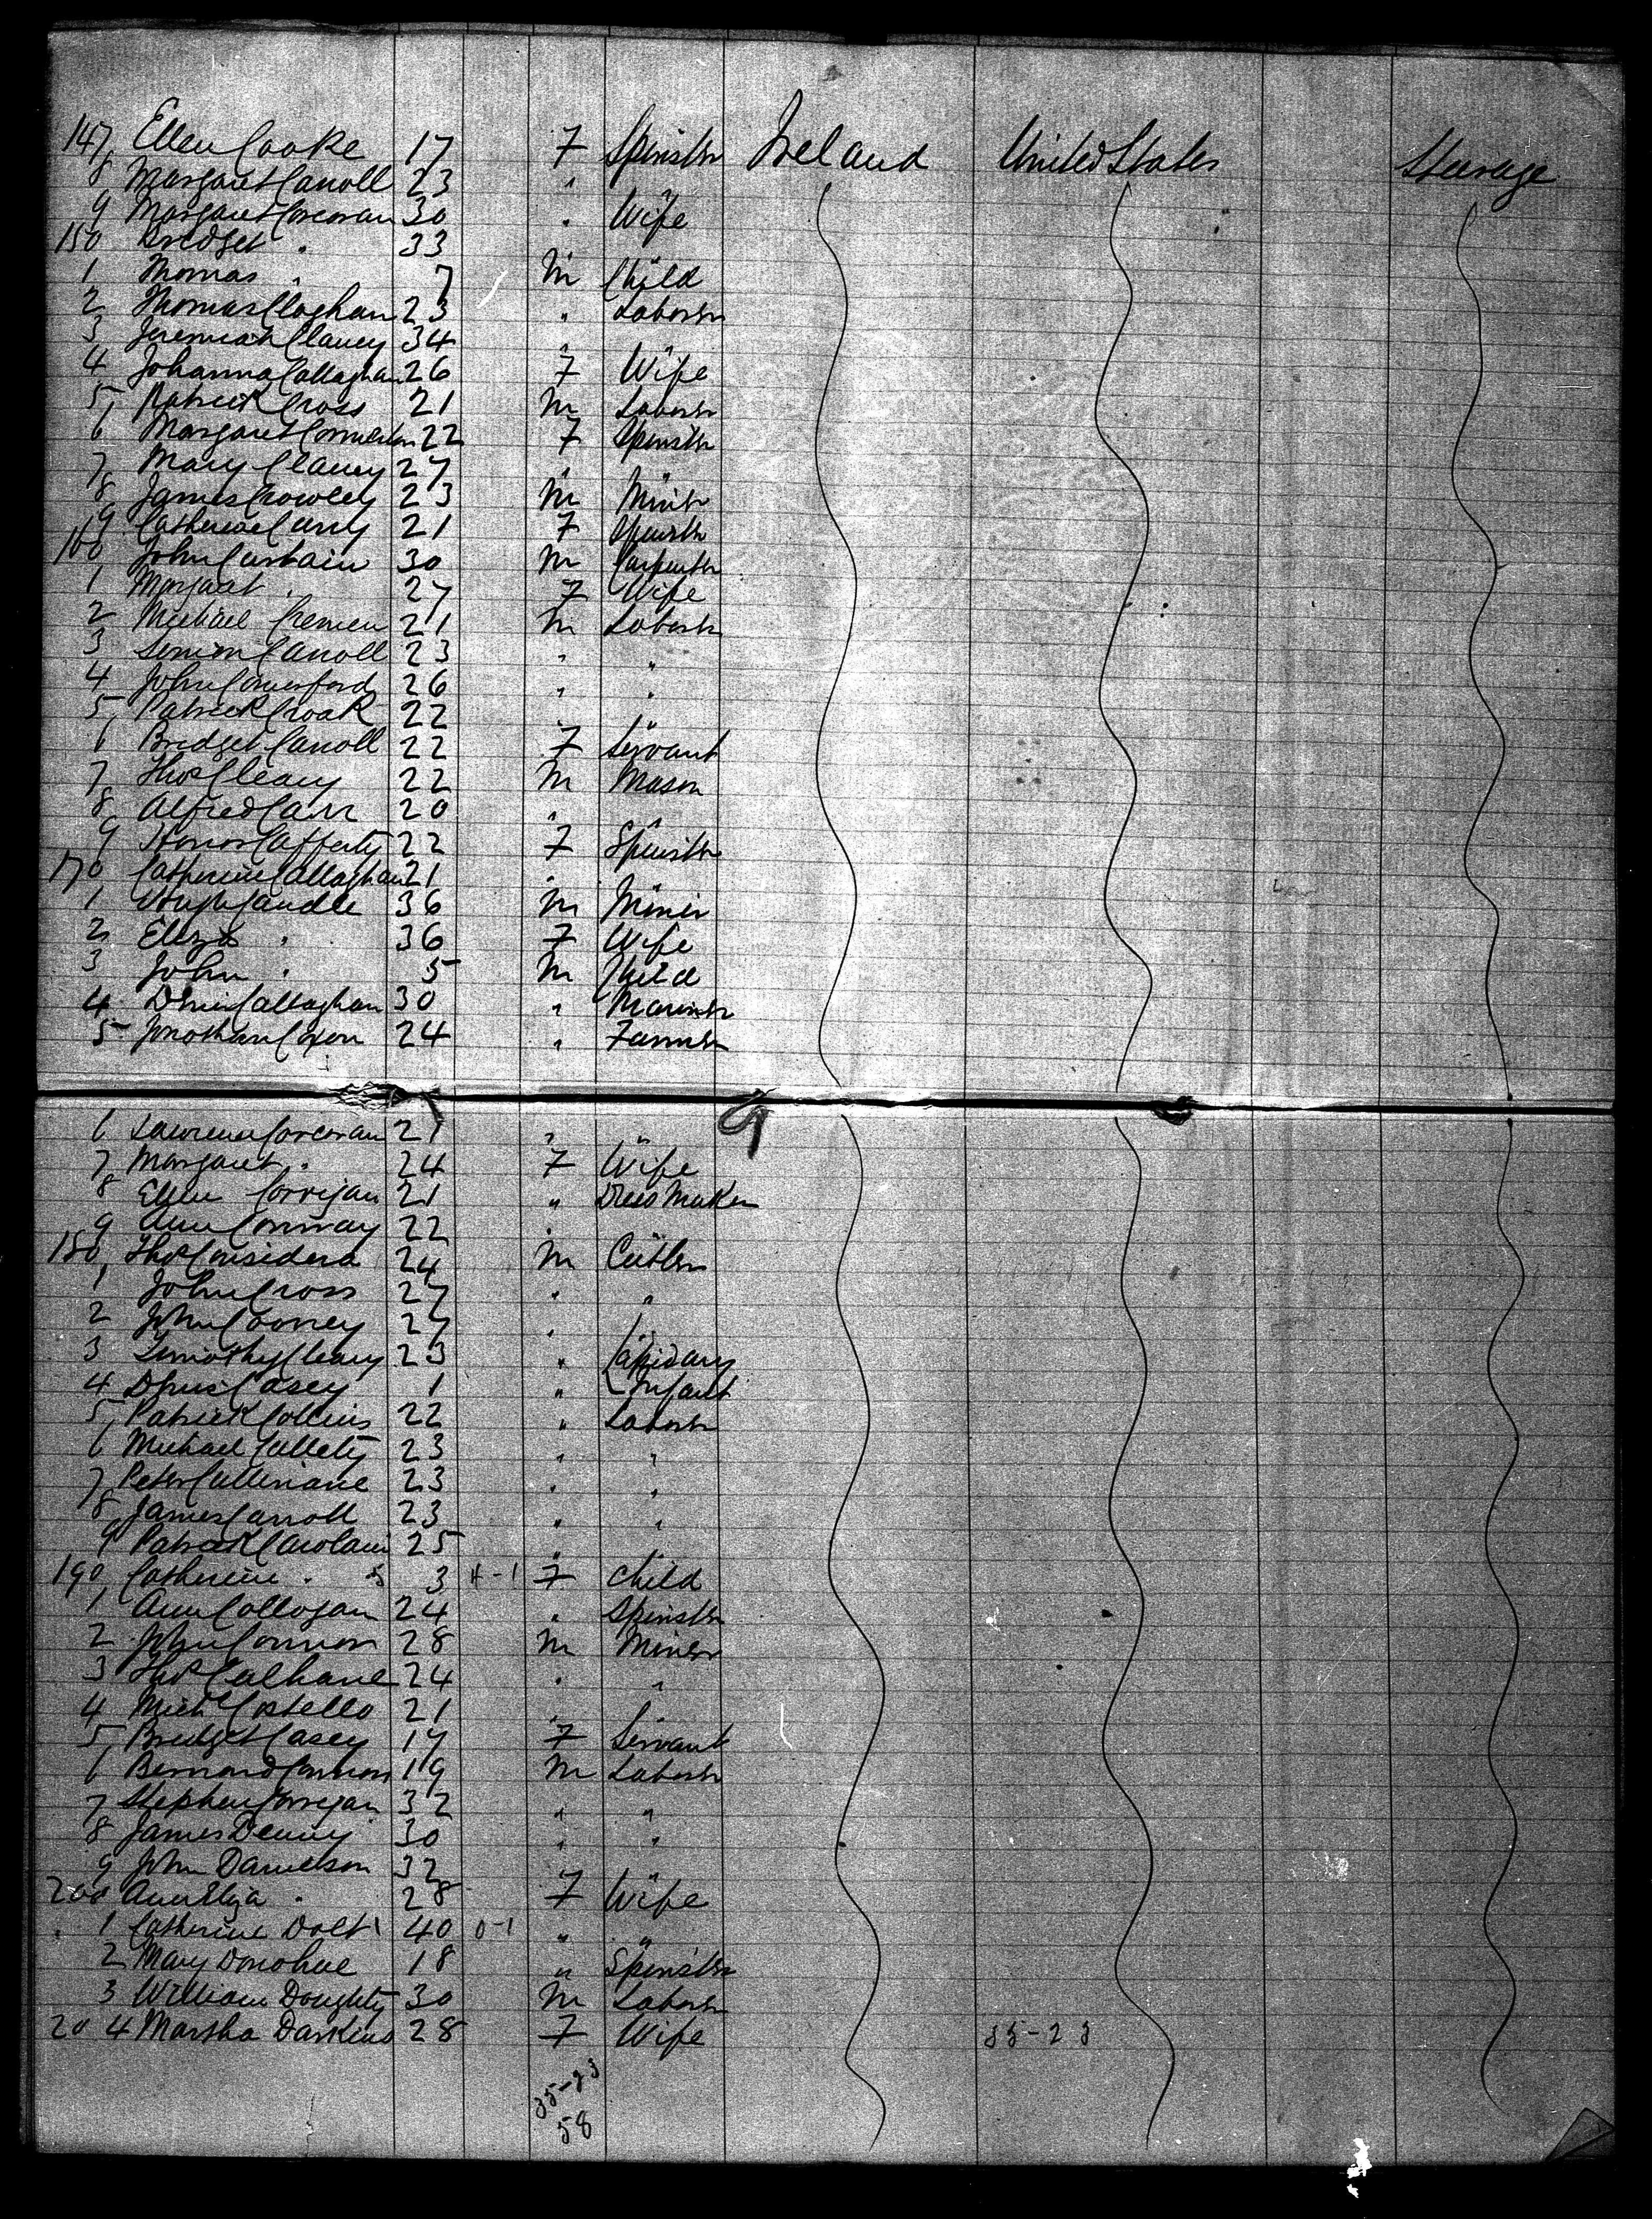 147 Ellen Cooke 17 F Spinster Ireland United States Steerage
8 Margaret Carroll 23 "
9 Margaret Corcoran 30 " Wife
150 Bridget " 33
1 Thomas " 7 M Child
2 Thomas Claghan 23 " Laborer
3 Jeremiah Clancy 34 "
4 Johanna Callaghan 26 F Wife
5 Patrick Cross 21 M Laborer
6 Margaret 22 F Spinster
7 Mary Clancy 27 "
8 James Crowley 23 M Miner
9 Catherine Curry 21 F Spinster
160 John Curtain 30 M Carpenter
1 Margaret " 27 F Wife
2 Michael Cremen 21 M Laborer
3 Simon Carroll 23 " "
4 John Comerford 26 " "
5 Patrick Croak 22 " "
6 Bridget Carroll 22 F Servant
7 Thos Cleary 22 M Mason
8 Alfred Carr 20 " "
9 Honor Cafferty 22 F Spinster
170 Catherine Callaghan 21 "
1 Hugh Caudle 36 M Miner
2 Eliza " 36 F Wife
3 John " 5 M Child
4 Denis Callaghan 30 " Mariner
5 Jonathan Coxon 24 " Farmer
6 Lawrence Corcoran 27 " "
7 Margaret " 24 F Wife
8 Ellen Corrigan 21 " Dress Maker
9 Ann Conway 22 "
180 Thos Considera 24 M Cutler
1 John Cross 27 " "
2 John Cooney 27 " "
3 Timothy Cleary 23 " Lapidary
4 Denis Casey 1 " Infant
5 Patrick Collins 22 " Laborer
6 Michael Cullety 23 " "
7 Peter Cullinane 23 " "
8 James Carroll 23 " "
9 Patrick Carolan 25 "
190 Catherine " 3 F Child
1 Ann Collogan 24 " Spinster
2 John Connor 28 M Miner
3 Thos Culhane 24 " "
4 Mich Costello 21 "
5 Bridget Casey 17 F Servant
6 Bernard Cannon 19 M Laborer
7 Stephen Corregan 32 " "
8 James Denny 30 " "
9 John Danielson 32 " "
200 Ann Eliza " 28 F Wife
1 Catherine Dolt 40 0-1 " "
2 Mary Donohue 18 " Spinster
3 William Doughty 30 M Laborer
204 Martha Darkins 28 F Wife 35-23
35-23
58